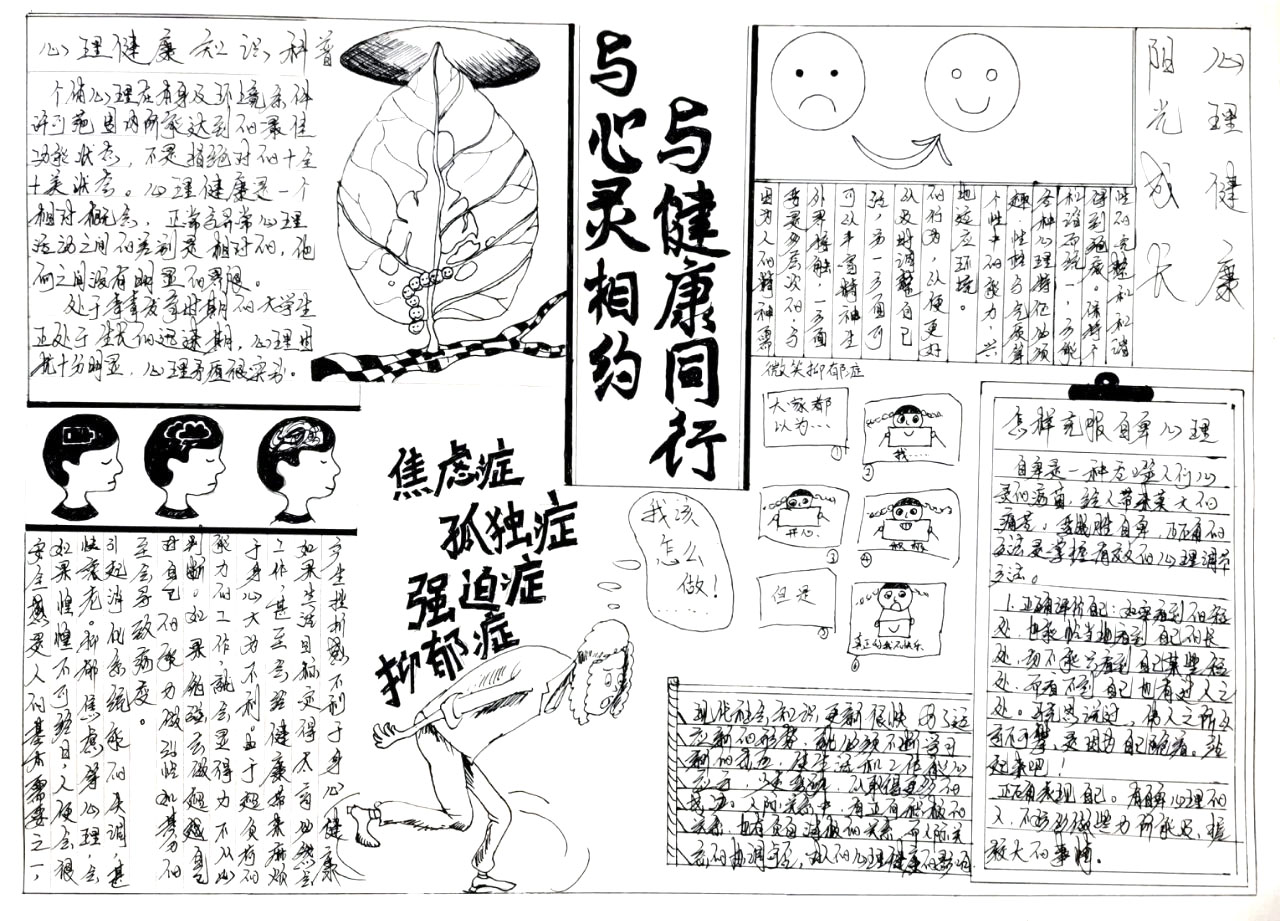 心理健康知识科普
个体心理在自身及环境条件
许可范围内所能达到的最佳
功能状态，不是指绝对的十全
十美状态。心理健康是一个
相对概念，正常与异常心理
活动之间的差别是相对的，他
们之间没有明显的界限。
处于青春发育时期的大学生
正处于生长的迅速期，心理困
扰十分明显，心理矛盾很深刻。
与心灵相约
与健康同行
心理健康
阳光成长
性的完整和和谐
得到强度。保持个
和谐而统一，才能
各种心理特征必须
趣、性格与气质等
个性中的能力、兴
地适应环境。
的行为，以便更好
以及时调整自己
活，另一方面可
可以丰富精神生
外界接触，一方面
要是多层次的，与
因为人的精神需
微笑抑郁症
大家都
以为…
①
我……
②
开心
③
积极
④
但是
⑤
真正的我不快乐
⑥
焦虑症
孤独症
强迫症
抑郁症
我该
怎么
做！
……
怎样克服自卑心理
自卑是一种吞噬人们心
灵的病菌，给人带来莫大的
痛苦，要战胜自卑，正确的
方法是掌握有效的心理调节
方法。
1.正确评价自己：如实看到的短
处，也能恰当地看到自己的长
处，切不能只看到自己某些短
处，而看不到自己也有过人之
处。马克思说过，伟人之所以
高不可攀，是因为自己跪着。站
起来吧！
正确表现自己。有自卑心理的
人，不妨多做些力所能及、把握
较大的事情。
现代社会知识更新很快，为了适
应新的形势，就必须不断学习
新的东西，使生活和工作能
人际关系中，有正向积极的
关系，也有负向消极的关系，而人际关
系的协调与否，对人的心理健康的影响
多生挫折感不利于身心健康
如果生活目标定得太高必然会
工作，甚至会给健康带来麻烦
于身心大为不利。由于超负荷的
能力的工作，就会显得力不从心
判断。如果勉强去做超越自己
对自己的能力做到恰如其分的
至会导致病变。
引起消化系统功能的失调，甚
快衰老。抑郁、焦虑等心理，会
如果惶惶不可终日，人便会很
安全感是人的基本需要之一，